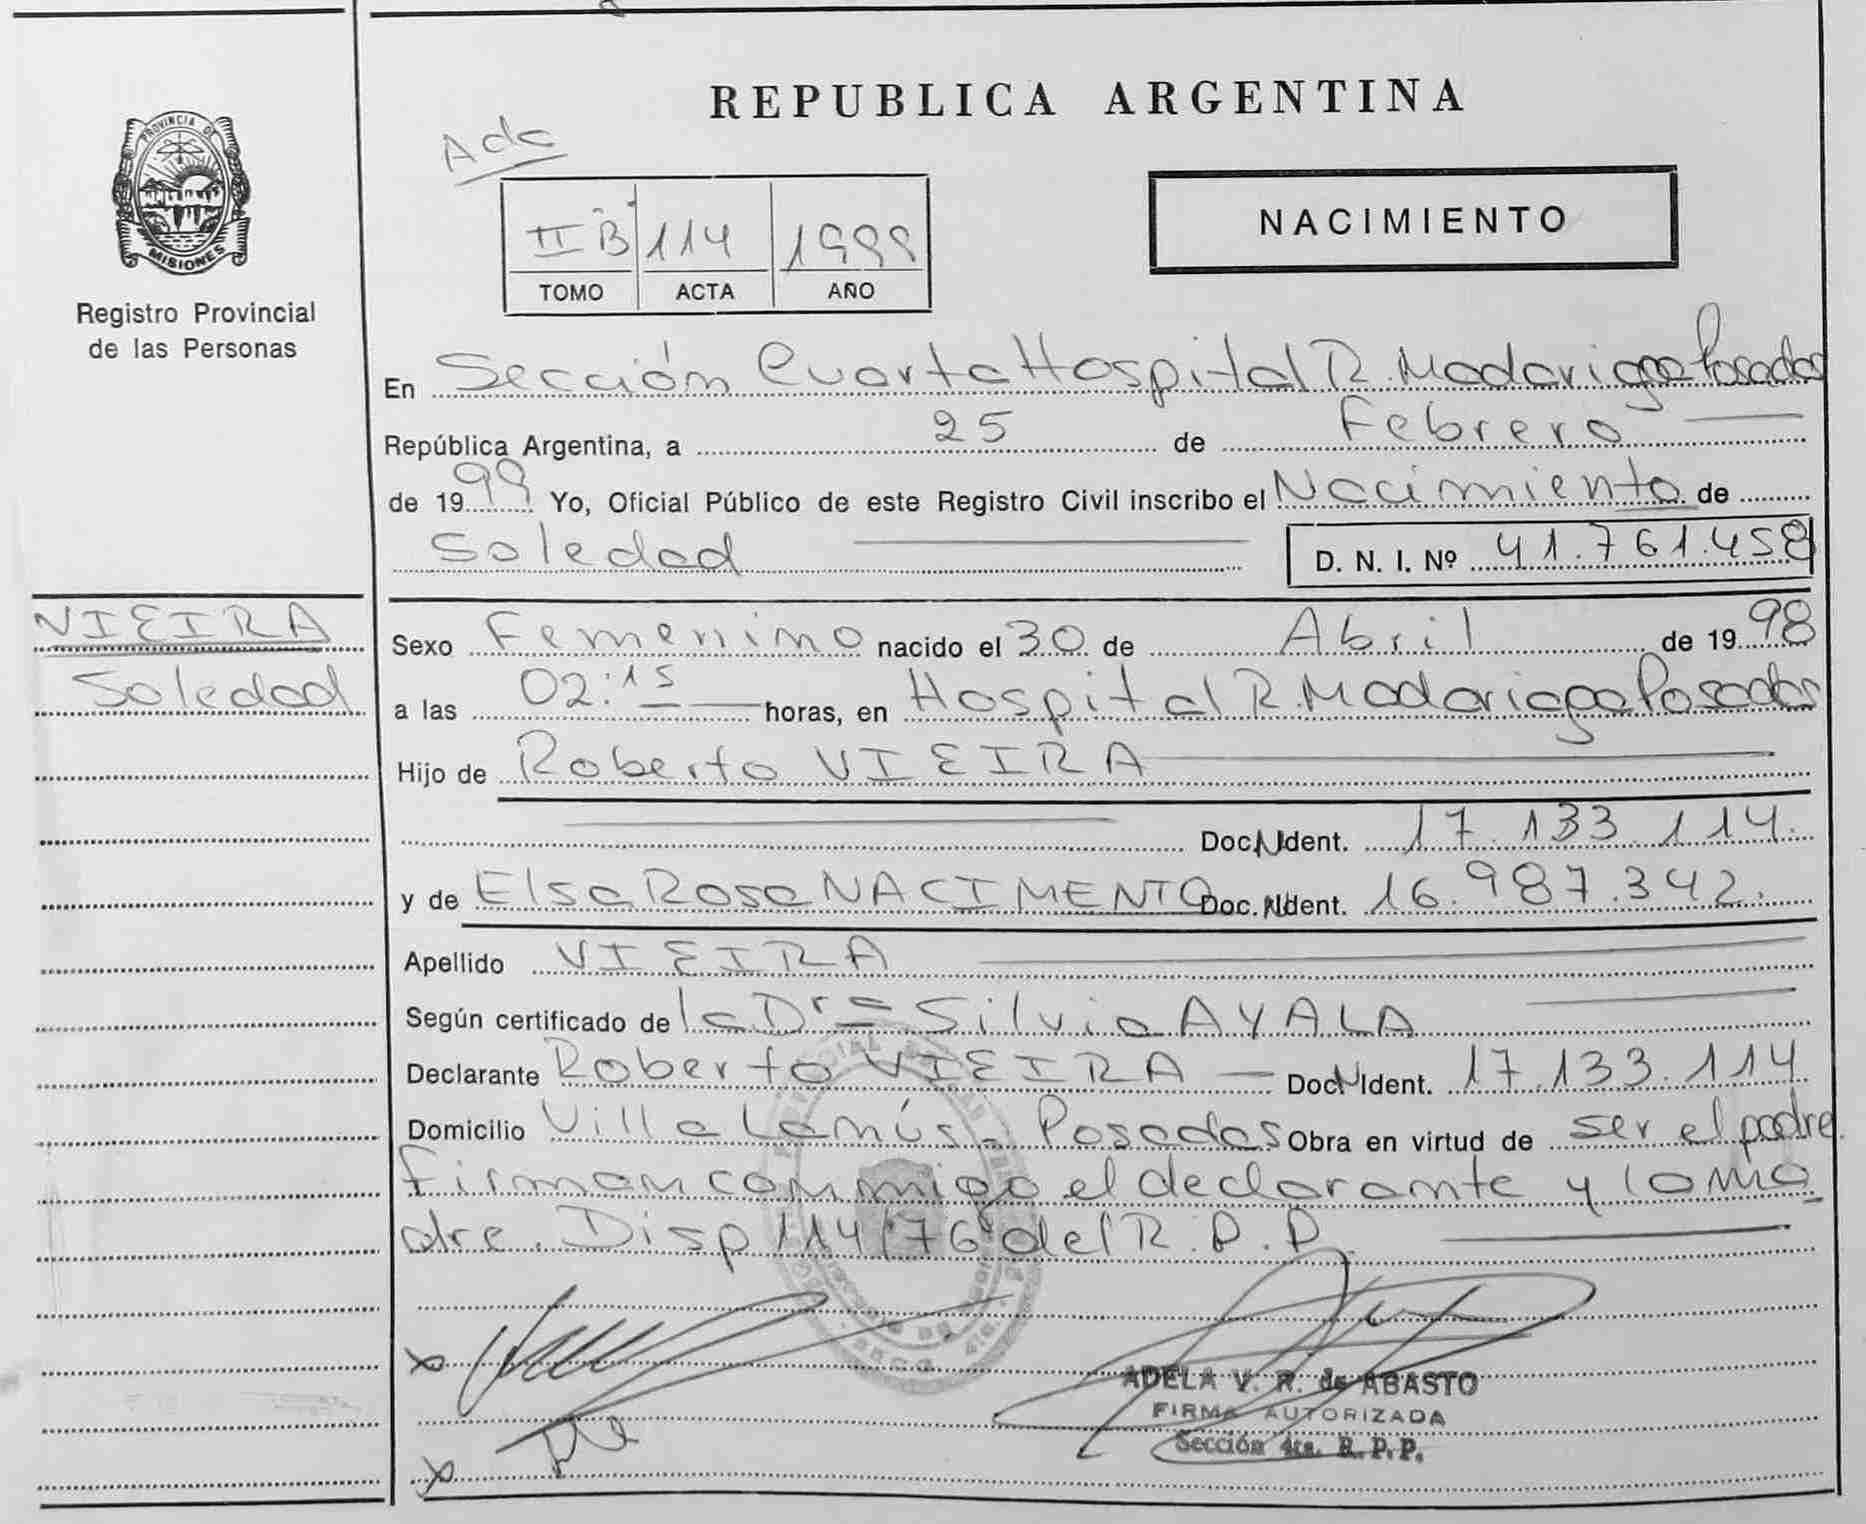 REPUBLICA ARGENTINA
PROVINCIA DE
MISIONES
Registro Provincial
de las Personas
Adc
II B 114 1999
TOMO ACTA AÑO
NACIMIENTO
En Sección Cuarta Hospital R. Madariaga Posadas
República Argentina, a 25 de Febrero
de 1999 Yo, Oficial Público de este Registro Civil inscribo el Nacimiento de
Soledad D. N. I. Nº 41.761.458
VIEIRA
Soledad
Sexo Femenino nacido el 30 de Abril de 1998
a las 02:15 horas, en Hospital R. Madariaga Posadas
Hijo de Roberto VIEIRA
Doc. N. Ident. 17.133.114.
y de Elsa Rosa NACIMENTO Doc. N. Ident. 16.987.342.
Apellido VIEIRA
Según certificado de la Dra Silvia AYALA
Declarante Roberto VIEIRA Doc N Ident. 17.133.114
Domicilio Villa Lanús - Posadas Obra en virtud de ser el padre.
Firman conmigo el declarante y la ma
dre. Disp 114/76 del R.P.P.
X
ADELA V. R. de ABASTO
FIRMA AUTORIZADA
Sección 4ta. R. P. P.
X